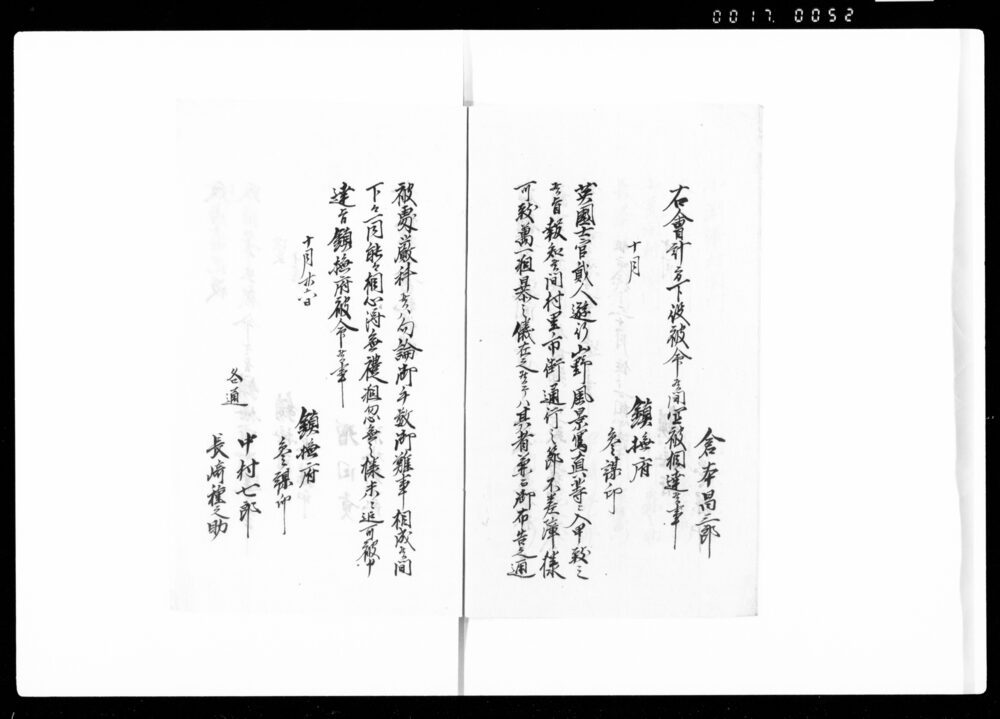 0017 0052
倉本昌三郎
右會計方下役被命候間宜被相達候事
十月
鎮撫府
参謀印
英國士官貳人遊行山野風景寫真等ニ入甲致シ
候旨報知候間村里市街通行之節不差障様
可致萬一狙暴之儀在之候ハ其者兼而御布告之通
被處嚴科候ハ勿論御手数御難事相成候間
下々一同能々相心得無禮狙忽無之様末々迠可被申
達旨鎮撫府被命候事
十月廿六日
鎮撫府
参謀印
各通
中村七郎
長崎種之助